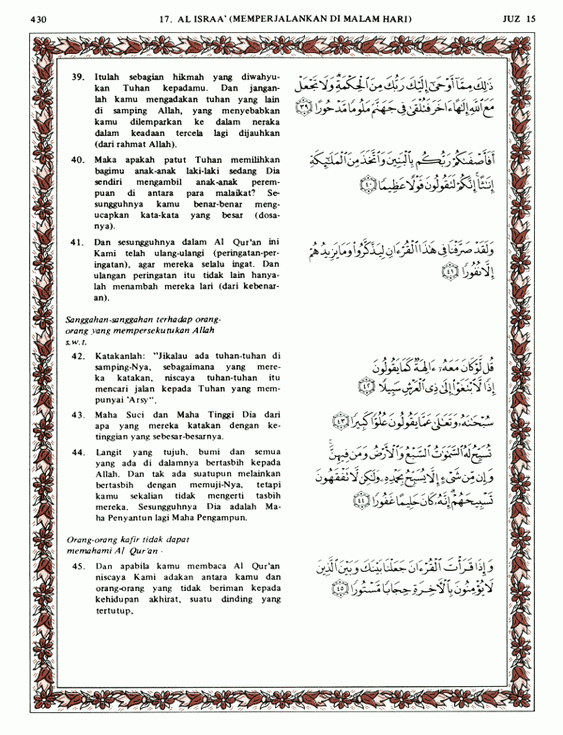 430 17. AL ISRAA' (MEMPERJALANKAN DI MALAM HARI) JUZ 15
39. Itulah sebagian hikmah yang diwahyu-
kan Tuhan kepadamu. Dan jangan-
lah kamu mengadakan tuhan yang lain
di samping Allah, yang menyebabkan
kamu dilemparkan ke dalam neraka
dalam keadaan tercela lagi dijauhkan
(dari rahmat Allah).
ذَٰلِكَ مِمَّا أَوْحَىٰ إِلَيْكَ رَبُّكَ مِنَ الْحِكْمَةِ وَلَا تَجْعَلْ
مَعَ اللَّهِ إِلَٰهًا ءَاخَرَ فَتُلْقَىٰ فِي جَهَنَّمَ مَلُومًا مَّدْحُورًا ﴿٣٩﴾
40. Maka apakah patut Tuhan memilihkan
bagimu anak-anak laki-laki sedang Dia
sendiri mengambil anak-anak perem-
puan di antara para malaikat? Se-
sungguhnya kamu benar-benar meng-
ucapkan kata-kata yang besar (dosa-
nya).
أَفَأَصْفَىٰكُمْ رَبُّكُم بِالْبَنِينَ وَاتَّخَذَ مِنَ الْمَلَٰٓئِكَةِ
إِنَٰثًا إِنَّكُمْ لَتَقُولُونَ قَوْلًا عَظِيمًا ﴿٤٠﴾
41. Dan sesungguhnya dalam Al Qur'an ini
Kami telah ulang-ulangi (peringatan-per-
ingatan), agar mereka selalu ingat. Dan
ulangan peringatan itu tidak lain hanya-
lah menambah mereka lari (dari kebenar-
an).
وَلَقَدْ صَرَّفْنَا فِي هَٰذَا الْقُرْءَانِ لِيَذَّكَّرُوا وَمَا يَزِيدُهُمْ
إِلَّا نُفُورًا ﴿٤١﴾
Sanggahan-sanggahan terhadap orang-
orang yang mempersekutukan Allah
s.w.t.
42. Katakanlah: "Jikalau ada tuhan-tuhan di
samping-Nya, sebagaimana yang mere-
ka katakan, niscaya tuhan-tuhan itu
mencari jalan kepada Tuhan yang mem-
punyai 'Arsy".
قُل لَّوْ كَانَ مَعَهُ ءَالِهَةٌ كَمَا يَقُولُونَ
إِذًا لَّابْتَغَوْا إِلَىٰ ذِي الْعَرْشِ سَبِيلًا ﴿٤٢﴾
43. Maha Suci dan Maha Tinggi Dia dari
apa yang mereka katakan dengan ke-
tinggian yang sebesar-besarnya.
سُبْحَٰنَهُ وَتَعَٰلَىٰ عَمَّا يَقُولُونَ عُلُوًّا كَبِيرًا ﴿٤٣﴾
44. Langit yang tujuh, bumi dan semua
yang ada di dalamnya bertasbih kepada
Allah. Dan tak ada suatupun melainkan
bertasbih dengan memuji-Nya, tetapi
kamu sekalian tidak mengerti tasbih
mereka. Sesungguhnya Dia adalah Ma-
ha Penyantun lagi Maha Pengampun.
تُسَبِّحُ لَهُ السَّمَٰوَٰتُ السَّبْعُ وَالْأَرْضُ وَمَن فِيهِنَّ
وَإِن مِّن شَيْءٍ إِلَّا يُسَبِّحُ بِحَمْدِهِ وَلَٰكِن لَّا تَفْقَهُونَ
تَسْبِيحَهُمْ إِنَّهُ كَانَ حَلِيمًا غَفُورًا ﴿٤٤﴾
Orang-orang kafir tidak dapat
memahami Al Qur'an
45. Dan apabila kamu membaca Al Qur'an
niscaya Kami adakan antara kamu dan
orang-orang yang tidak beriman kepada
kehidupan akhirat, suatu dinding yang
tertutup,
وَإِذَا قَرَأْتَ الْقُرْءَانَ جَعَلْنَا بَيْنَكَ وَبَيْنَ الَّذِينَ
لَا يُؤْمِنُونَ بِالْءَاخِرَةِ حِجَابًا مَّسْتُورًا ﴿٤٥﴾